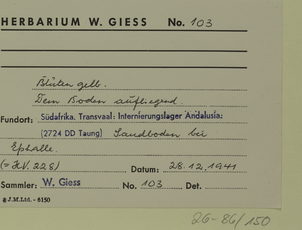 HERBARIUM W. GIESS No. 103
Blüten gelb.
Dem Boden aufliegend
Fundort: Südafrika. Transvaal: Internierungslager Andalusia:
(2724 DD Taung) Sandboden bei
Ephalle.
(= H.V. 228) Datum: 28.12.1941
Sammler: W. Giess No. 103 Det.
J.M.Ltd. - 6150
26-86/150